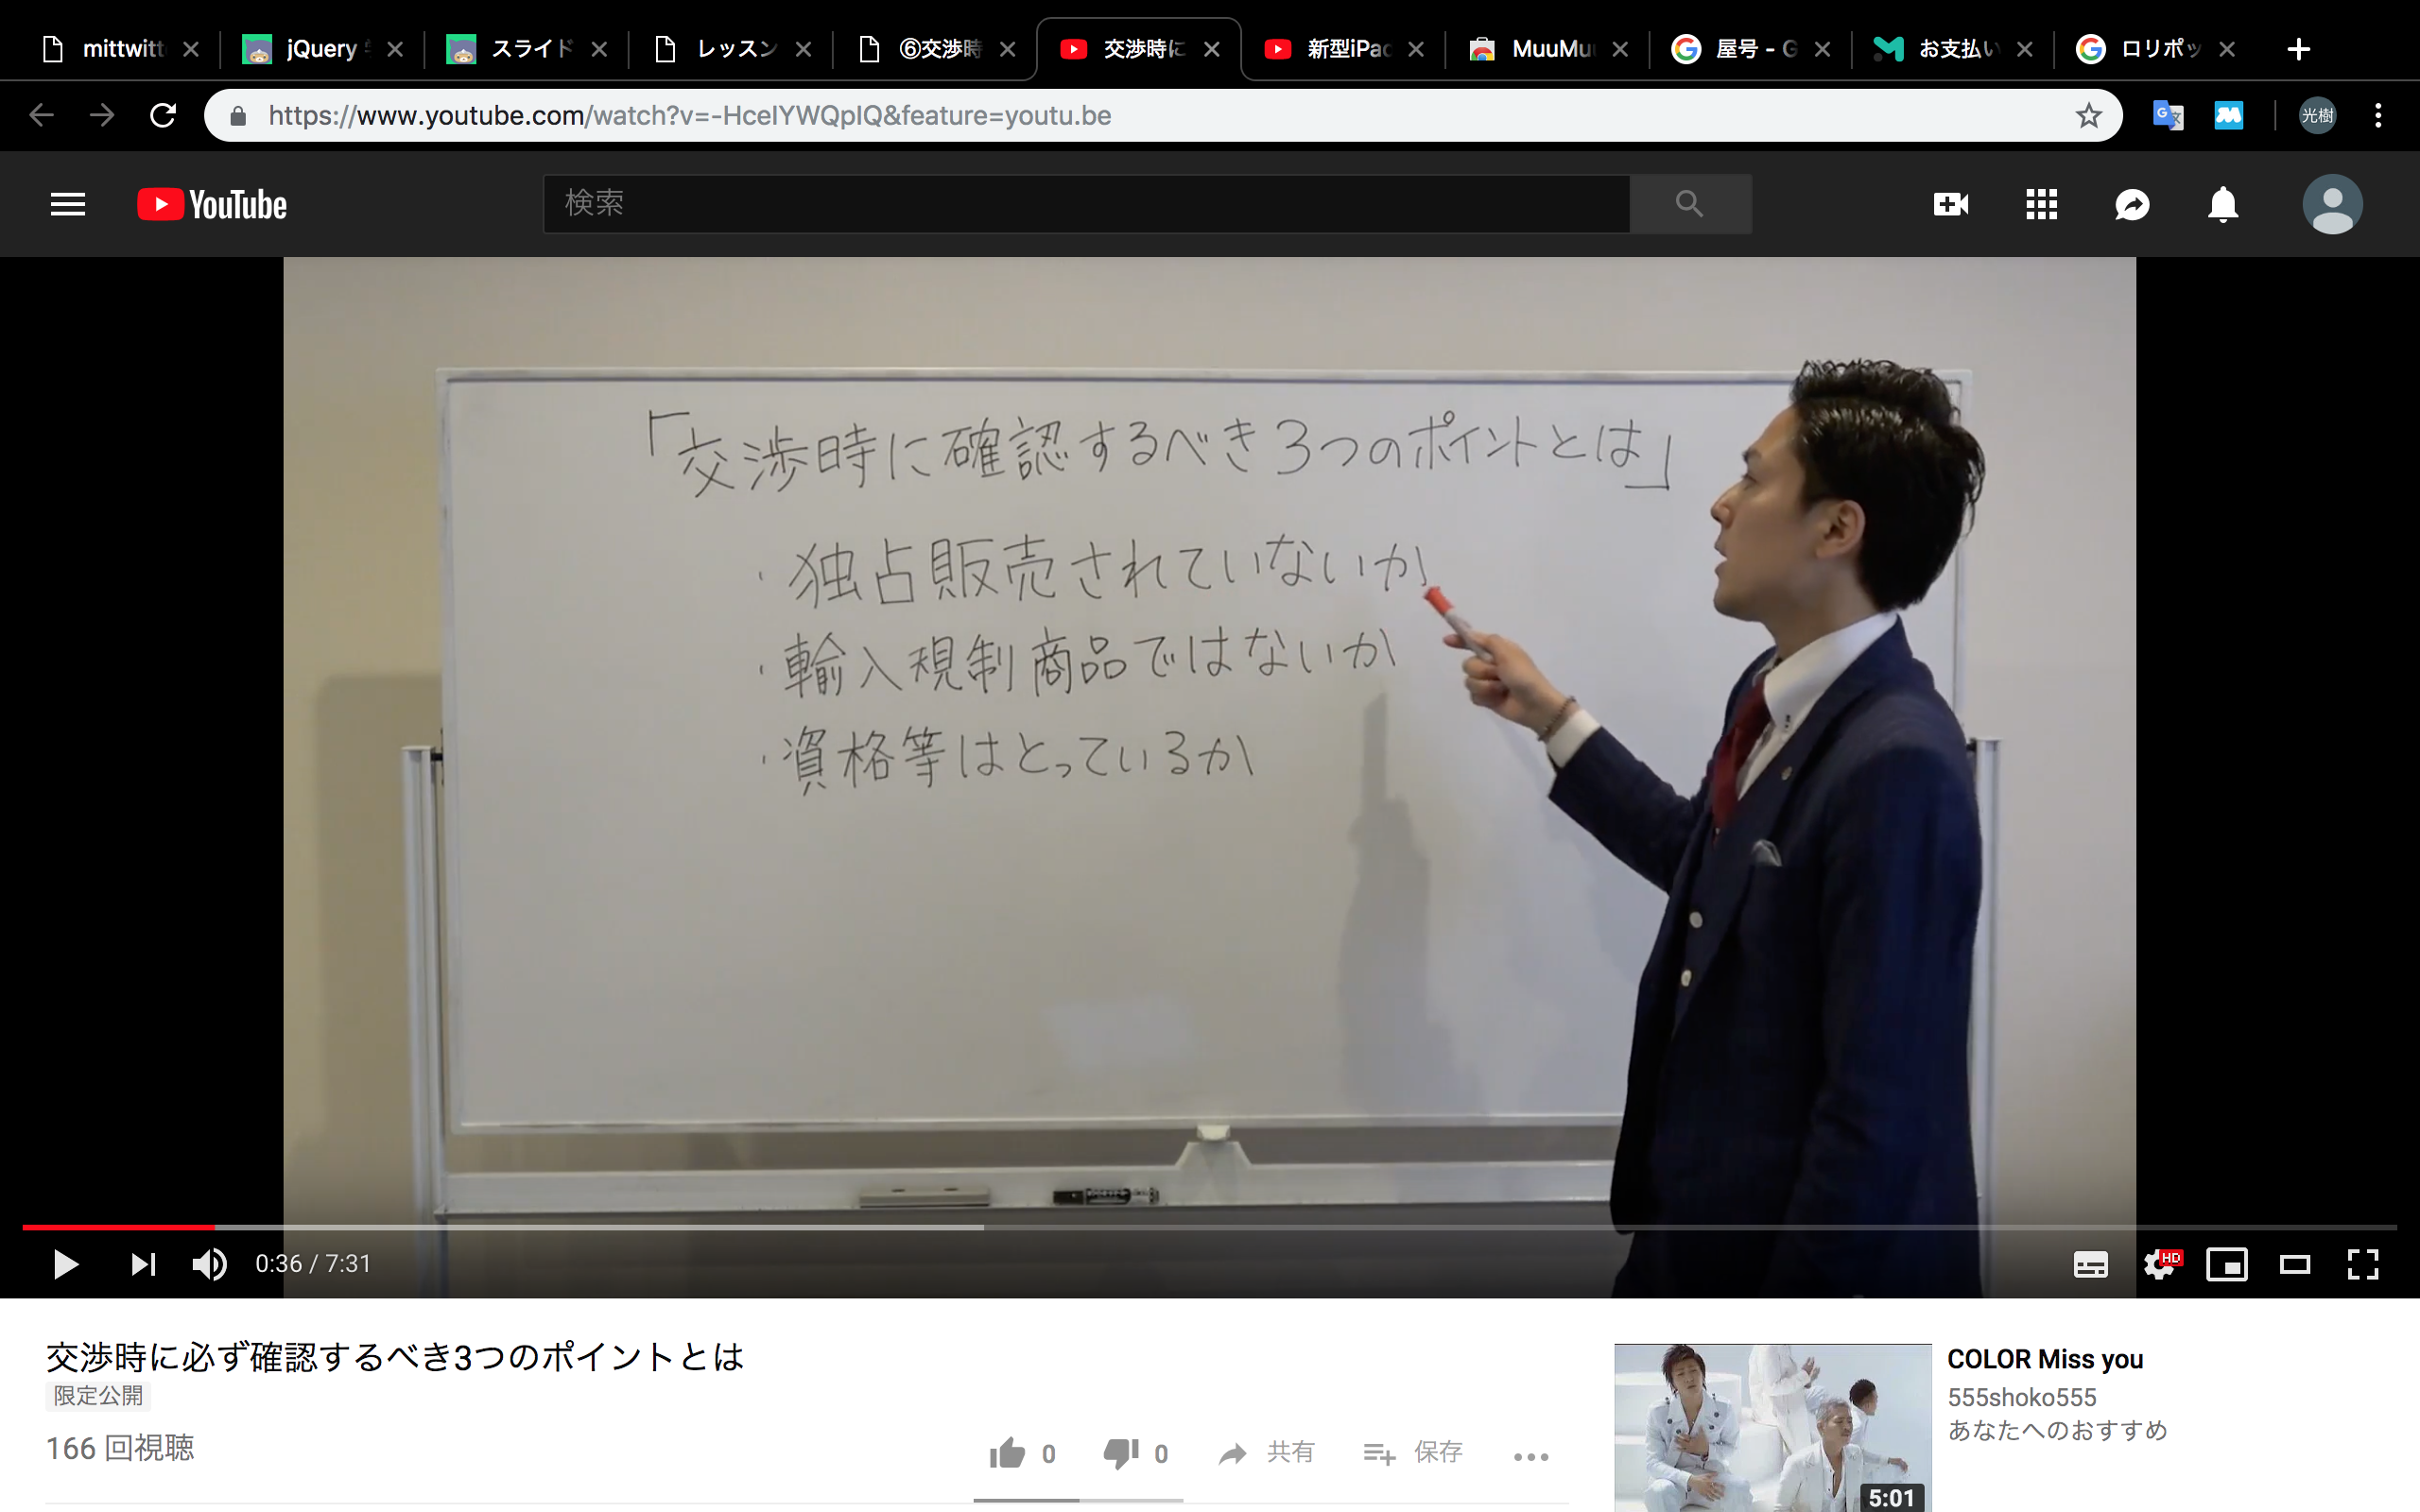 mittwitt
jQuery
スライド
レッスン
⑥交渉時
交渉時に
新型iPad
MuuMu
屋号 - G
お支払い
ロリポッ
https://www.youtube.com/watch?v=-HceIYWQpIQ&feature=youtu.be
光樹
YouTube
検索
「交渉時に確認するべき3つのポイントとは」
・独占販売されていないか
・輸入規制商品ではないか
・資格等はとっているか
0:36 / 7:31
HD
交渉時に必ず確認するべき3つのポイントとは
限定公開
166 回視聴
0
0
共有
保存
COLOR Miss you
555shoko555
あなたへのおすすめ
5:01